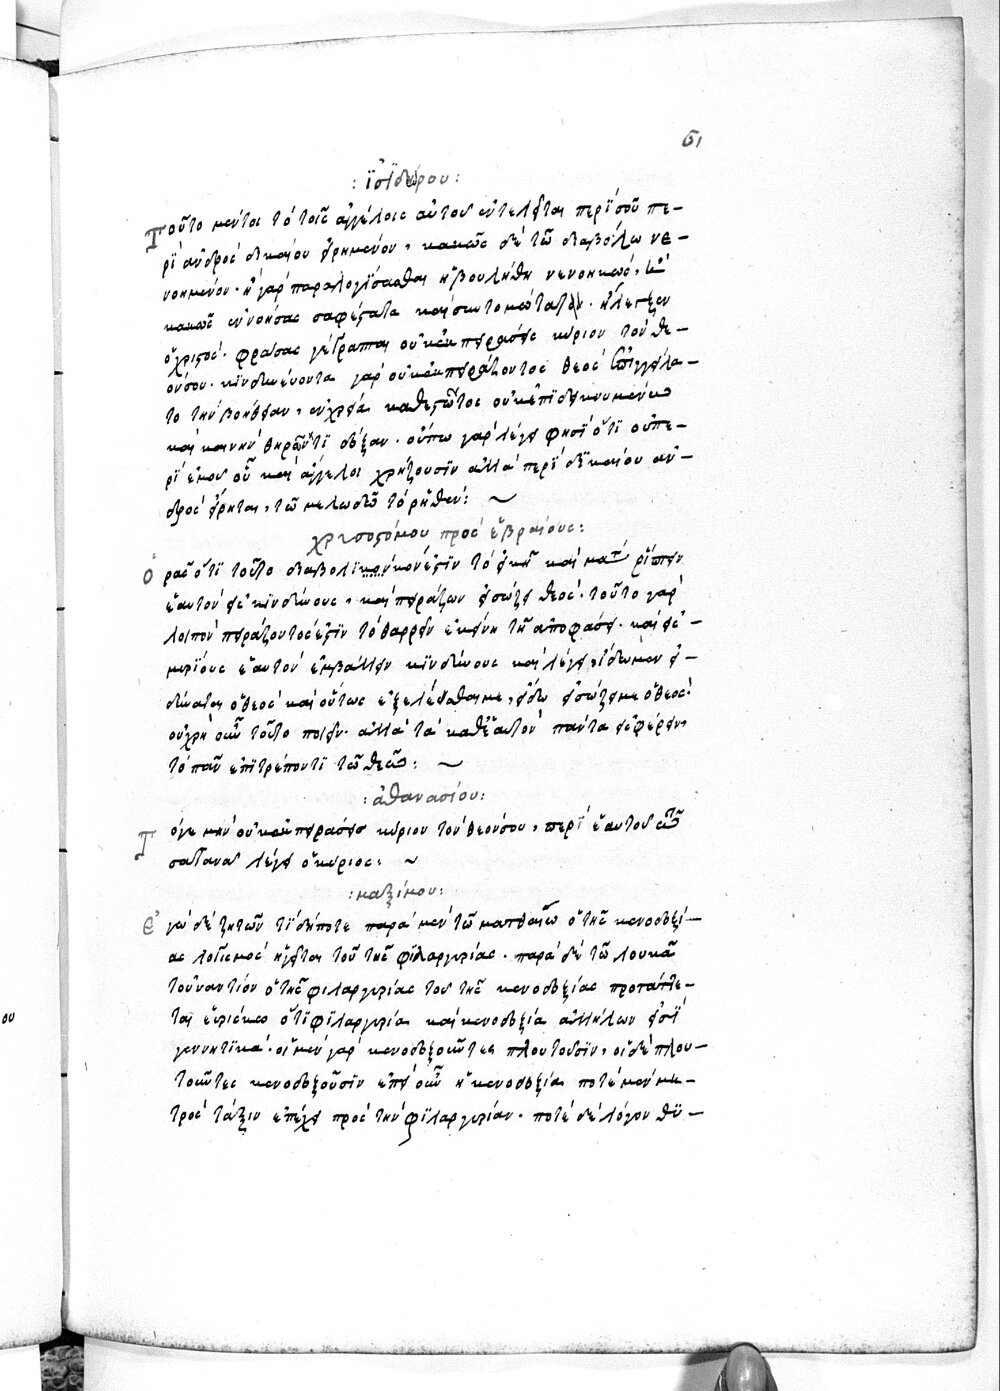 61
: ἰσιδώρου :
Τοῦτο μέντοι τὸ τοῖς ἀγγέλοις αὐτοῦ ἐντελεῖται περὶ σοῦ πε-
ρὶ ἀνδρὸς δικαίου εἰρημένον, κακῶς δὲ τῶ διαβόλω νε-
νοημένον. ἢ γὰρ παραλογίσασθαι ἠβουλήθη νενοηκὼς, ἢ
κακῶς ἐννοήσας σαφέστατα καὶ συντομώτατα ἤλεγξεν
ὁ χριστός. φράσας γέγραπται οὐκ ἐκπειράσεις κύριον τὸν θε-
όν σου. κινδυνεύοντα γὰρ οὐκ ἐκπειράζοντος θεὸς ἐπηγγείλα-
το τὴν βοήθειαν,
καὶ κενὴν θηρῶντι δόξαν. οὔπω γὰρ λέγει φησὶ ὅτι οὐ πε-
ρὶ ἐμοῦ οὗ καὶ ἄγγελοι χρήζουσιν ἀλλὰ περὶ δικαίου ἀν-
δρὸς εἴρηται, τῶ μελωδῶ τὸ ῥηθέν: ~
χρυσοστόμου πρὸς ἑβραίους:
Ὁρᾶς ὅτι τοῦτο διαβολικόν ἐστιν τὸ εἰκῆ καὶ μάτην ῥίπτειν
ἑαυτὸν εἰς κινδύνους, καὶ πειράζειν εἰ σώζει θεός. τοῦτο γὰρ
λοιπὸν πειράζοντός ἐστιν τὸ θαρρεῖν ἐκείνη τῆ ἀποφάσει. καὶ εἰς
μυρίους ἑαυτὸν ἐμβάλλειν κινδύνους καὶ λέγει, ἴδωμεν εἰ
δύναται ὁ θεὸς καὶ οὕτως ἐξελέσθαι με, εἴδω εἰ σώζει με ὁ θεός!
οὐ χρὴ οὖν τοῦτο ποιεῖν. ἀλλὰ τὰ καθ' ἑαυτὸν πάντα εἰσφέρειν,
τὸ πᾶν ἐπιτρέποντι τῶ θεῶ: ~
: ἀθανασίου:
Τό γε μὴν οὐκ ἐκπειράσεις κύριον τὸν θεόν σου, περὶ ἑαυτοῦ τῶ
σατανᾶ λέγει ὁ κύριος: ~
: μαξίμου:
Ἐγὼ δὲ ζητῶν τί δήποτε παρὰ μὲν τῶ ματθαίω ὁ τῆς κενοδοξί-
ας λογισμὸς ἡγεῖται τοῦ τῆς φιλαργυρίας. παρὰ δὲ τῶ λουκᾶ
τοὐναντίον ὁ τῆς φιλαργυρίας τοῦ τῆς κενοδοξίας προτάττε-
ται εὑρίσκω ὅτι φιλαργυρία καὶ κενοδοξία ἀλλήλων εἰσὶ
γεννητικά. οἱ μὲν γὰρ κενοδοξοῦντες πλουτοῦσιν, οἱ δὲ πλου-
τοῦντες κενοδοξοῦσιν ἐπεὶ οὖν ἡ κενοδοξία ποτὲ μὲν μη-
τρὸς τάξιν ἐπέχει πρὸς τὴν φιλαργυρίαν. ποτὲ δὲ λόγον θυ-